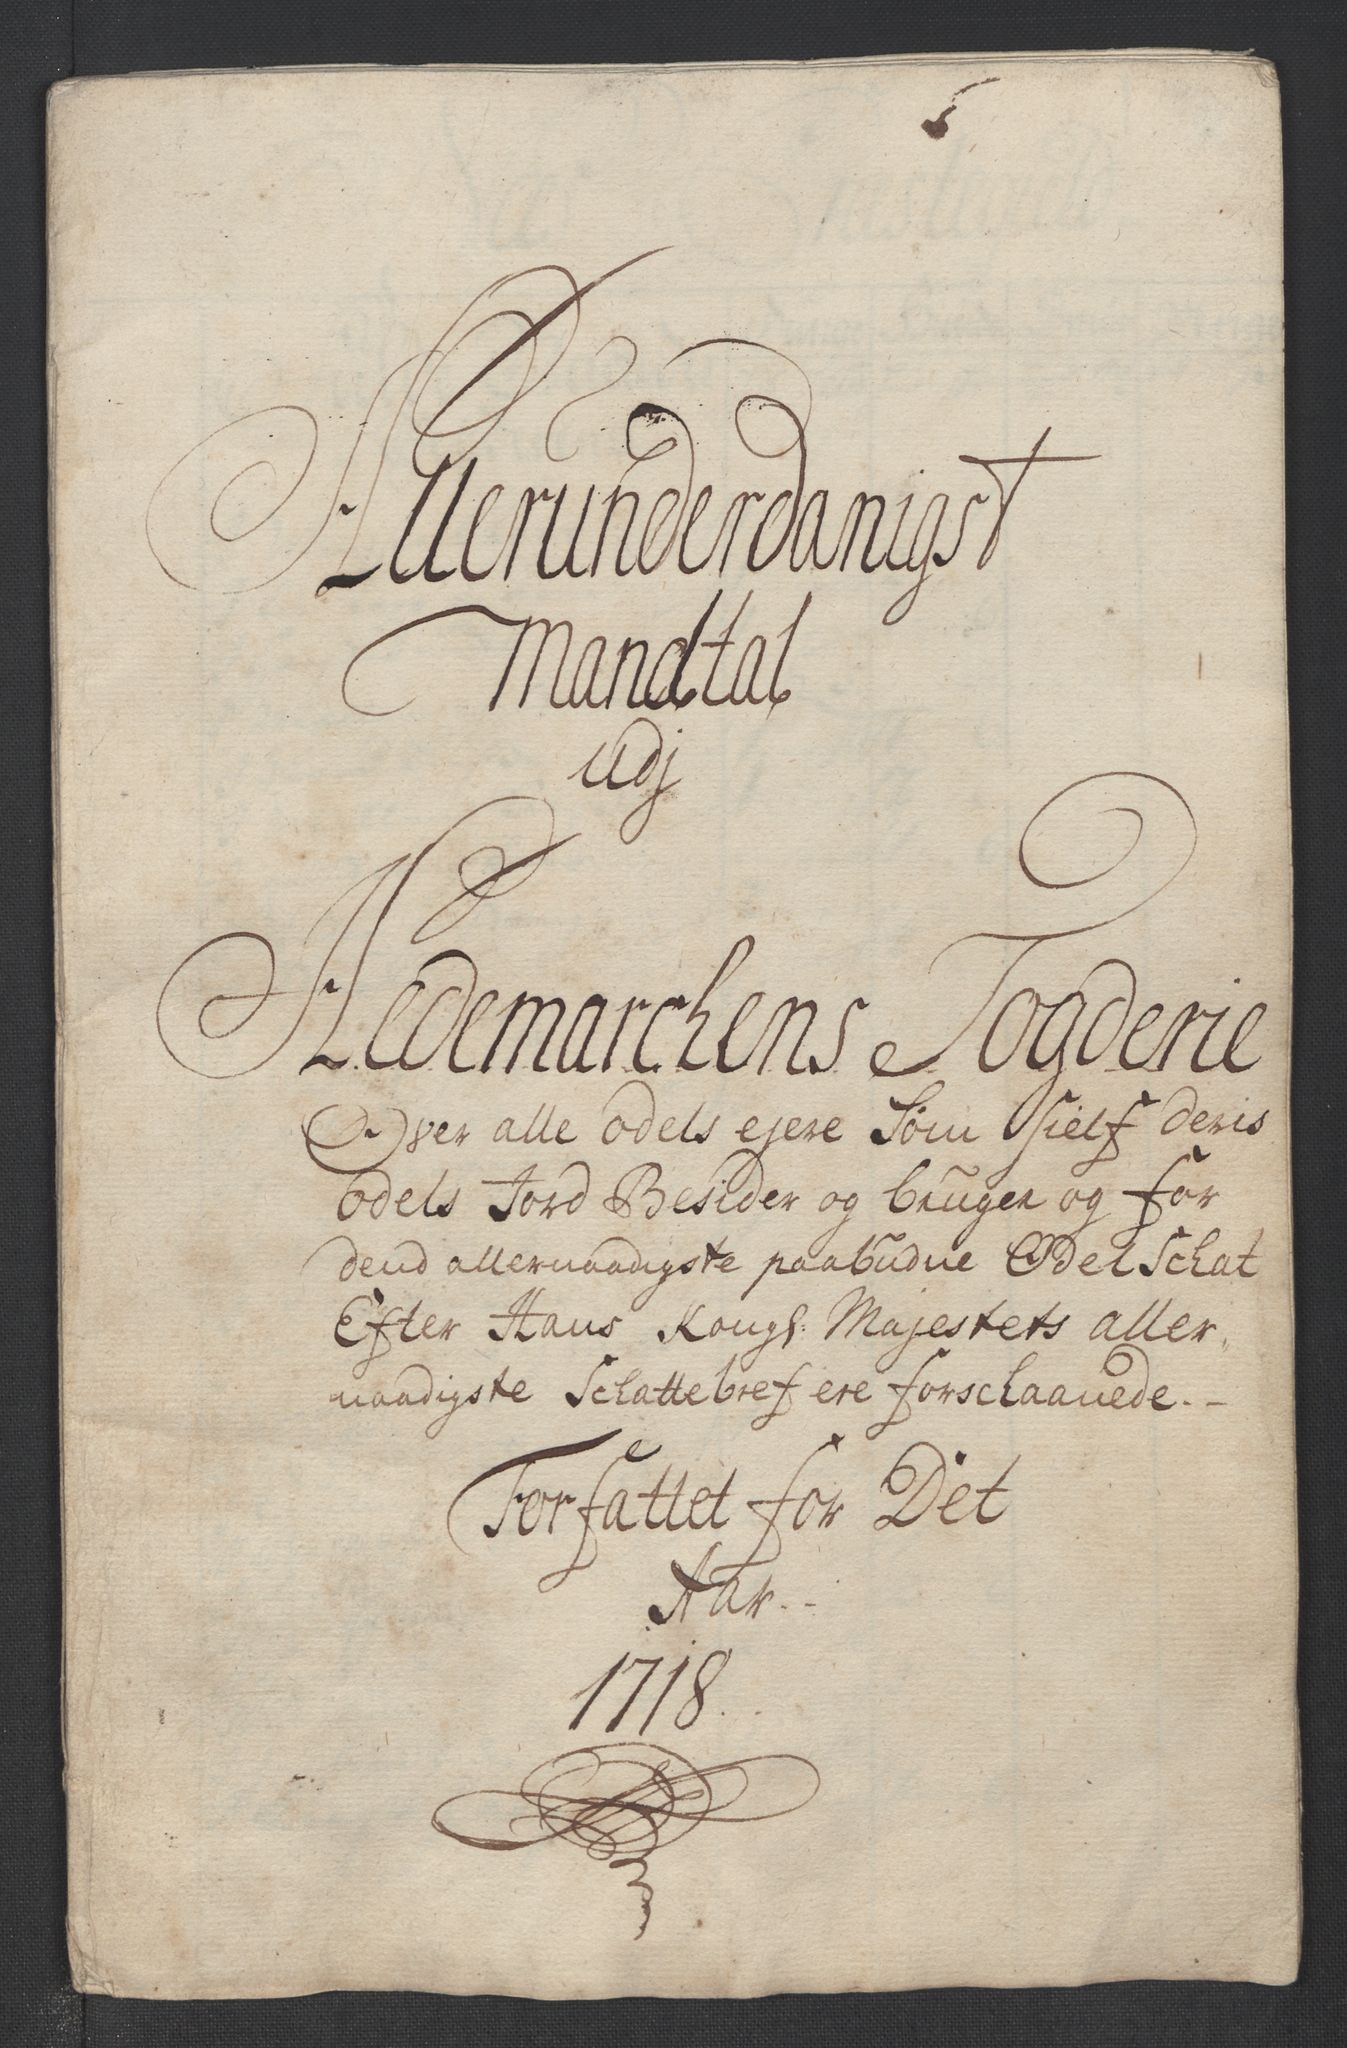 Allerunderdanigst
Mandtal
Udj
Hedemarchens Fogderie
Over alle odels ejere Som Sielf deris
odels Jord Besider og bruger og for
dend allernaadigste paabudne Odel Schat
Efter Hans Kongl: Majestets aller,
naadigste Schattebref ere forschaanede.-
Forfattet for Det
Aar.-
1718.